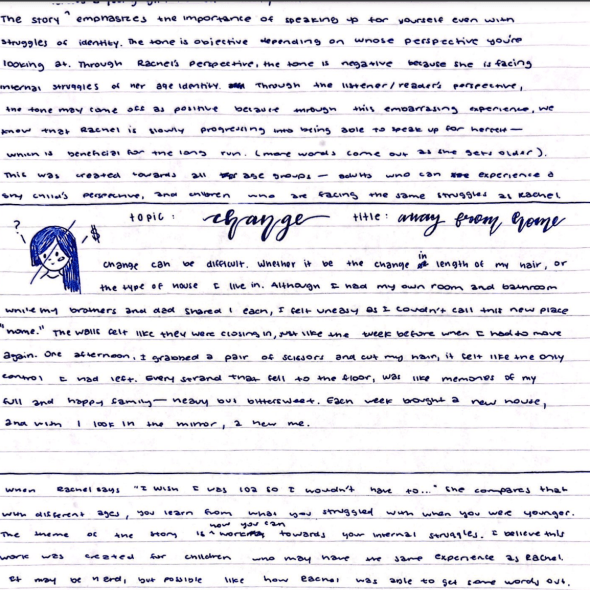 The story ^ emphasizes the importance of speaking up for yourself even with
struggles of identity. The tone is objective depending on whose perspective you're
looking at. Through Rachel's perspective, the tone is negative because she is facing
internal struggles of her age identity. Through the listener/reader's perspective,
the tone may come off as positive because through this embarrassing experience, we
know that Rachel is slowly progressing into being able to speak up for herself—
which is beneficial for the long run. (more words come out as she gets older).
This was created towards all age groups— adults who can experience a
shy child's perspective, and children who are facing the same struggles as Rachel
topic: change title: away from home
? $
change can be difficult. Whether it be the change in length of my hair, or
the type of house I live in. Although I had my own room and bathroom
while my brothers and dad shared 1 each, I felt uneasy as I couldn't call this new place
"home." The walls felt like they were closing in, just like the week before when I had to move
again. One afternoon, I grabbed a pair of scissors and cut my hair, it felt like the only
control I had left. Every strand that fell to the floor, was like memories of my
full and happy family— heavy but bittersweet. Each week bought a new house,
and I look in the mirror, a new me.
When Rachel says "I wish I was 102 so I wouldn't have to..." she compares that
with different ages, you learn from what you struggled with when you were younger.
The theme of the story is how you can work towards your internal struggles. I believe this
work was created for children who may have the same experience as Rachel.
It may be hard, but possible like how Rachel was able to get some words out.